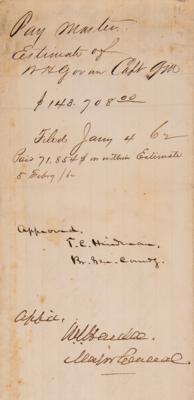 Pay Master
Estimate of
Govan Capt QM
$ 143.708 00
Filed Jany 4 62
Paid 71.854 $ on within Estimate
5 Feby /62
Approved.
T.C. Hindman
Br. Gen. Comdg.
App'd.
W J Hardee
Major General